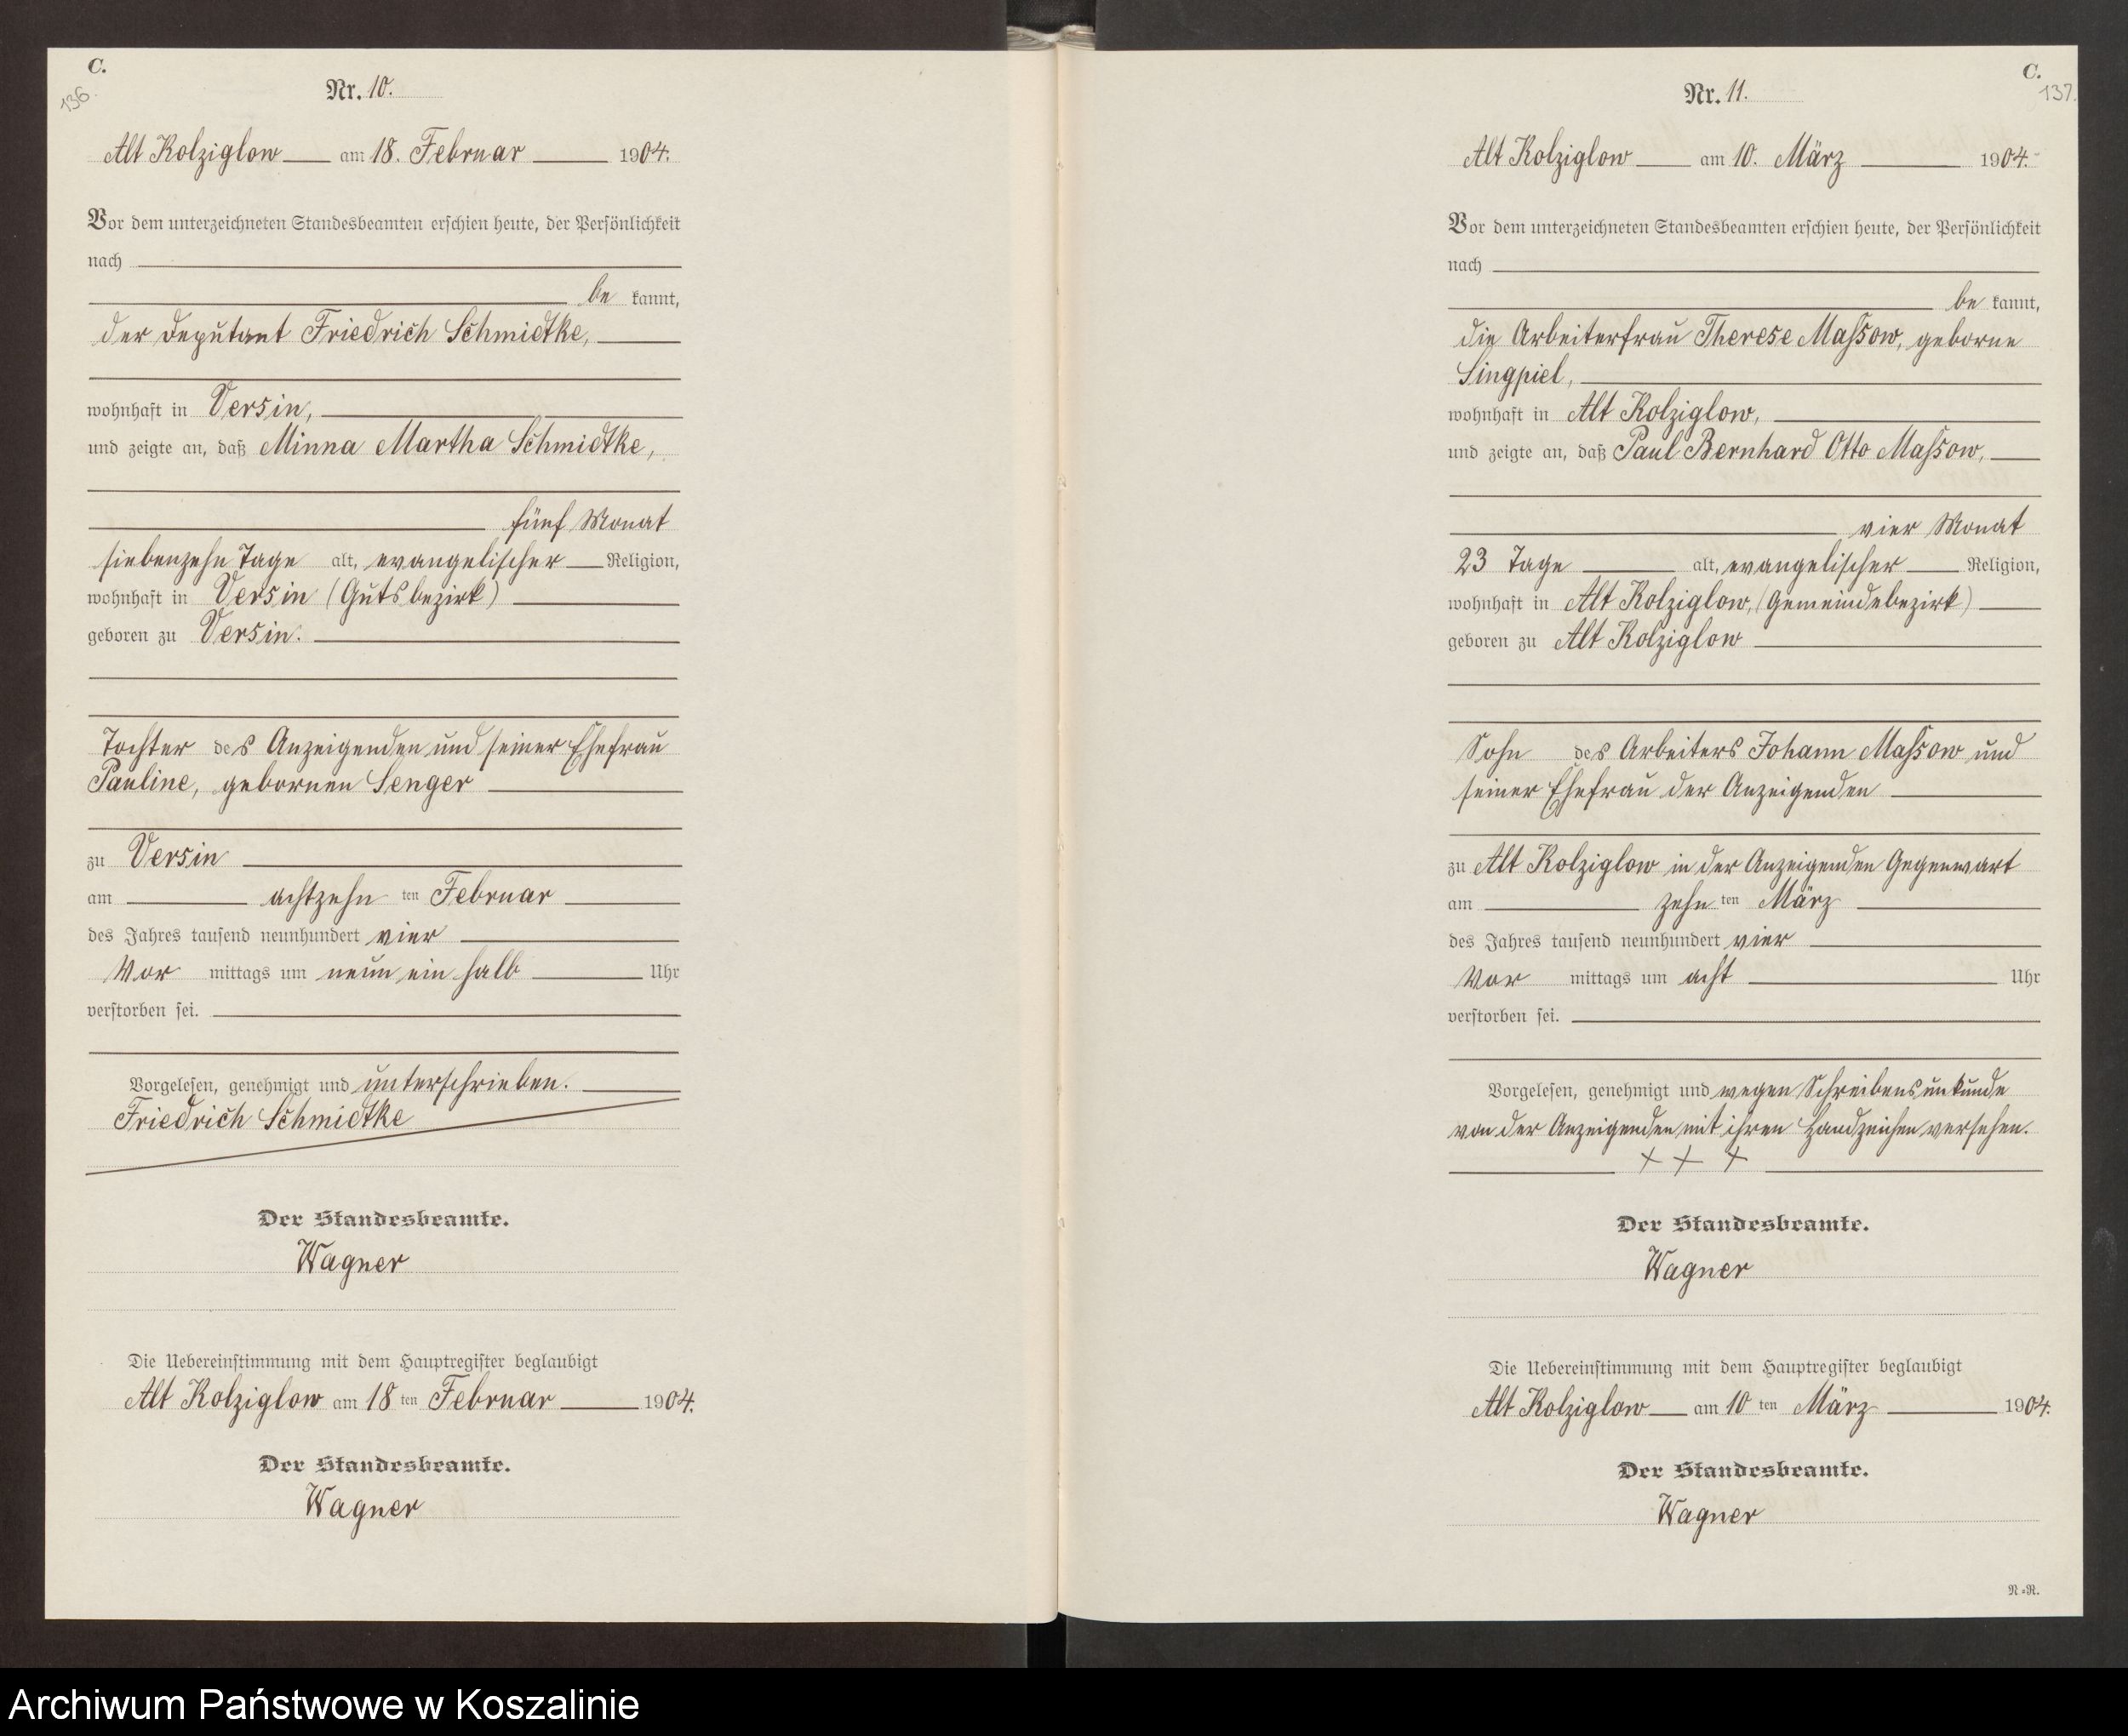 C.
136.
Nr. 10.
Alt Kolziglow am 18. Februar 1904.
Vor dem unterzeichneten Standesbeamten erschien heute, der Persönlichkeit
nach
be kannt,
der Deputant Friedrich Schmidtke,
wohnhaft in Versin,
und zeigte an, daß Minna Martha Schmidtke,
fünf Monat
siebenzehn Tage alt, evangelischer Religion,
wohnhaft in Versin (Gutsbezirk)
geboren zu Versin.
Tochter des Anzeigenden und seiner Ehefrau
Pauline, gebornen Senger
zu Versin
am achtzehn ten Februar
des Jahres tausend neunhundert vier
Vor mittags um neun ein halb Uhr
verstorben sei.
Vorgelesen, genehmigt und unterschrieben.
Friedrich Schmidtke
Der Standesbeamte.
Wagner
Die Uebereinstimmung mit dem Hauptregister beglaubigt
Alt Kolziglow am 18 ten Februar 1904.
Der Standesbeamte.
Wagner
C.
137.
Nr. 11.
Alt Kolziglow am 10. März 1904.
Vor dem unterzeichneten Standesbeamten erschien heute, der Persönlichkeit
nach
be kannt,
die Arbeiterfrau Therese Massow, geborne
Singpiel,
wohnhaft in Alt Kolziglow,
und zeigte an, daß Paul Bernhard Otto Massow,
vier Monat
23 Tage alt, evangelischer Religion,
wohnhaft in Alt Kolziglow, (Gemeindebezirk)
geboren zu Alt Kolziglow
Sohn des Arbeiters Johann Massow und
seiner Ehefrau der Anzeigenden
zu Alt Kolziglow in der Anzeigenden Gegenwart
am zehn ten März
des Jahres tausend neunhundert vier
Vor mittags um acht Uhr
verstorben sei.
Vorgelesen, genehmigt und wegen Schreibensunkunde
von der Anzeigenden mit ihren Handzeichen versehen.
+ + +
Der Standesbeamte.
Wagner
Die Uebereinstimmung mit dem Hauptregister beglaubigt
Alt Kolziglow am 10 ten März 1904.
Der Standesbeamte.
Wagner
N=R.
Archiwum Państwowe w Koszalinie